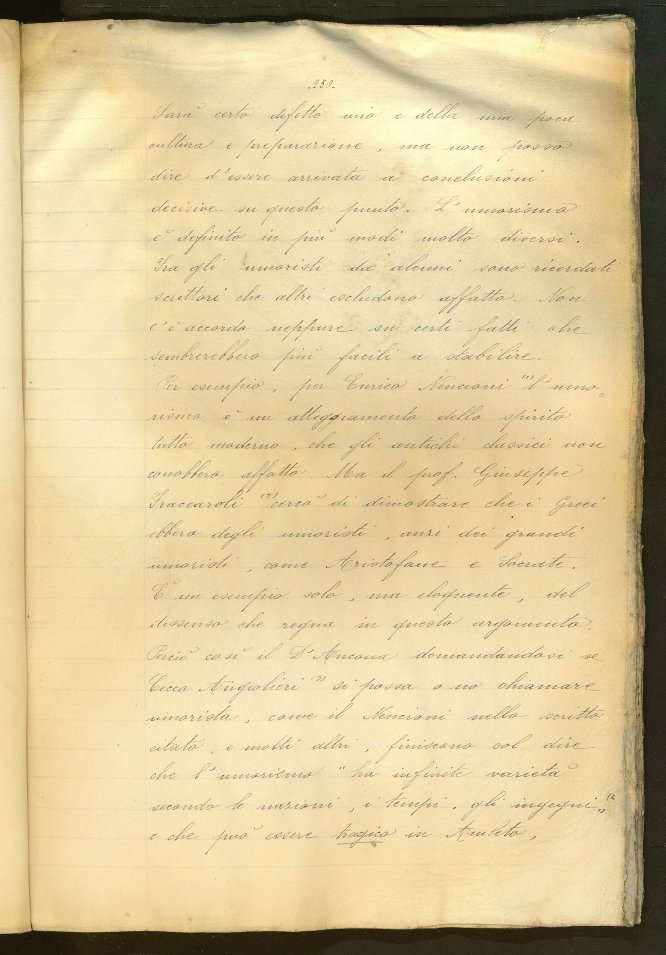 .253.
Sarà certo difetto mio e della mia poca
cultura e preparazione, ma non posso
dire d'essere arrivata a conclusioni
decisive su questo punto. L'umorismo
è definito in più modi molto diversi.
Tra gli umoristi da alcuni sono ricordati
scrittori che altri escludono affatto. Non
c'è accordo neppure su certi fatti che
sembrerebbero più facili a stabilire.
Per esempio, per Enrico Nencioni (1) l'umo-
rismo è un atteggiamento dello spirito
tutto moderno, che gli antichi classici non
conobbero affatto. Ma il prof. Giuseppe
Fraccaroli (2) cercò di dimostrare che i Greci
ebbero degli umoristi, anzi dei grandi
umoristi, come Aristofane e Socrate.
È un esempio solo, ma eloquente, del
dissenso che regna in questo argomento.
Perciò così il D'Ancona domandandosi se
Cecco Angiolieri (3) si possa o no chiamare
umorista, come il Nencioni nello scritto
citato, e molti altri, finiscono col dire
che l'umorismo "ha infinite varietà
secondo le nazioni, i tempi, gli ingegni" (4
e che può essere tragico in Amleto,